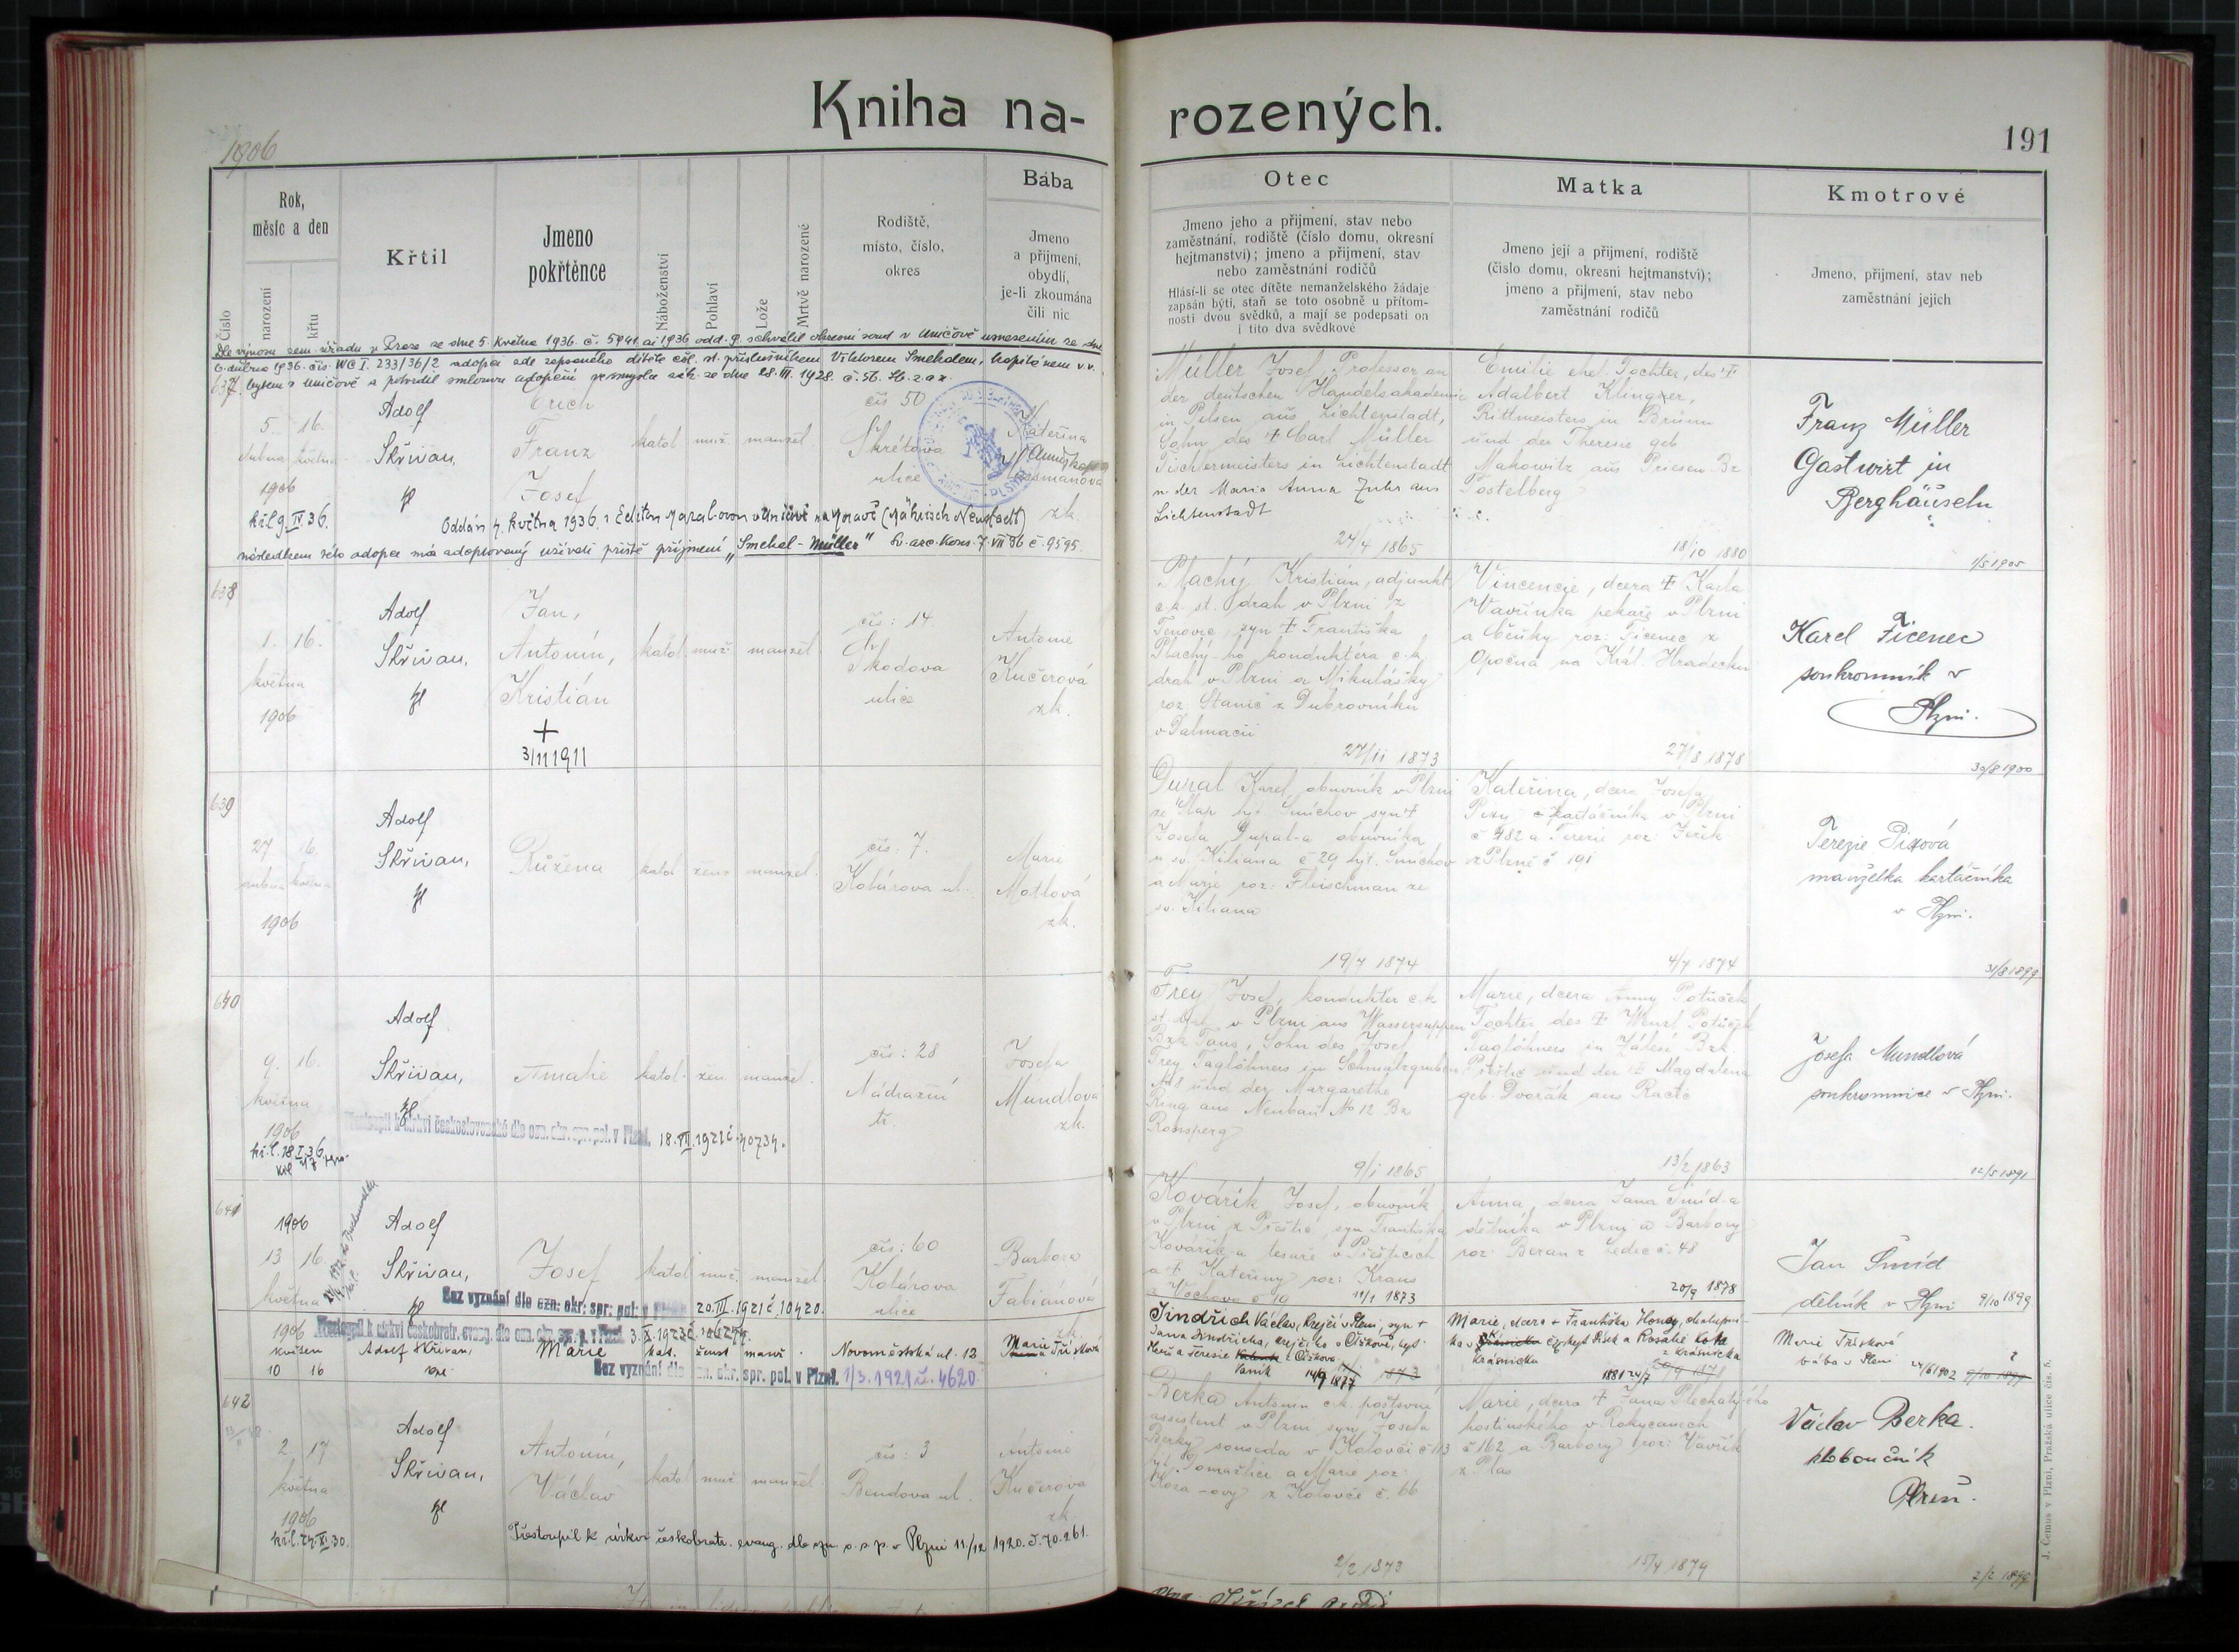 Kniha na-
rozených.
1906
191
Číslo
Rok,
měsíc a den
narození
křtu
Křtil
Jmeno
pokřtěnce
Náboženství
Pohlaví
Lože
Mrtvě narozené
Rodiště,
místo, číslo,
okres
Bába
Jmeno
a přijmení,
obydlí,
je-li zkoumána
čili nic
Otec
Jmeno jeho a přijmení, stav nebo
zaměstnání, rodiště (číslo domu, okresní
hejtmanství); jmeno a přijmení, stav
nebo zaměstnání rodičů
Hlásí-li se otec dítěte nemanželského žádaje
zapsán býti, staň se toto osobně u přítom-
nosti dvou svědků, a mají se podepsati on
i tito dva svědkové
Matka
Jmeno její a přijmení, rodiště
(číslo domu, okresní hejtmanství);
jmeno a přijmení, stav nebo
zaměstnání rodičů
Kmotrové
Jmeno, přijmení, stav neb
zaměstnání jejich
Dle výnosu zem. úřadu v Praze ze dne 5. května 1936. č. 5941 ai 1936 odd. 9. schválil okresní soud v Uničově usnesením ze dne
6. dubna 1936. čís. WC I. 233/36/2 adopci zde zapsaného dítěte čsl. st. příslušníkem Viktorem Smekalem, kapitánem v.v.
637 bytem v Uničově a potvrdil smlouvu adopční ve smyslu zák. ze dne 28. III. 1928. č. 56. Sb. z. a n.
5. 16.
dubna května
1906
kř. l. 9. IV. 36.
Adolf
Skřivan,
Erich
Franz
Josef
katol muž. manžel
čís 50
Škrétova
ulice
Kateřina
zk.
Oddán 7. května 1936. s Editou v Uničově na Moravě (Mährisch Neustadt)
následkem této adopce má adoptovaný užívati příště příjmení „Smekal-Müller" Sv. arc. Kons. 7. VII 36 č. 9595.
Müller Josef, Professor an
der deutschen Handelsakademie
in Pilsen aus Lichtenstadt,
Sohn des † Carl Müller
Tischlermeisters in Lichtenstadt
u. der Maria Anna Zuhr aus
Lichtenstadt
27/4 1865
Emilie ehel. Tochter, des †
Adalbert Klinger,
Rittmeisters in Brünn
und der Therese geb
Makowitz aus Priesen Bz
Postelberg
18/10 1880
Franz Müller
Gastwirt in
Berghäuseln
1/5 1905
638
1. 16.
května
1906
Adolf
Skřivan,
Jan,
Antonín,
Kristián
+
3/11 1911
katol. muž. manžel.
čís: 14
Škodova
ulice
Antonie
Kučerová
zk.
Plachý Kristián, adjunkt
c.k. st. drah v Plzni z
Tenovic, syn † Františka
Plachý-ho konduktéra c.k.
drah v Plzni a Mikulášky
roz: Stanić z Dubrovníku
v Dalmacii
27/11 1873
Vincencie, dcera † Karla
Vavřínka pekaře v Plzni
a Cěňky roz: Ficenec z
Opočna na Král. Hradecku
27/8 1878
Karel Ficenec
soukromník v
Plzni.
30/8 1900
639
27 16.
dubna května
1906
Adolf
Skřivan,
Růžena
katol žens manžel.
čís: 7.
Kolárova ul.
Marie
Motlová
zk.
Dupal Karel, obuvník v Plzni
ze Slap hjt. Smíchov syn †
Josefa Dupal-a obuvníka
u sv. Kiliana č 29 hjt. Smíchov
a Marie roz: Fleischman ze
sv. Kiliana
19/7 1874
Kateřina, dcera Josefa
kartáčníka v Plzni
č 482 a Terezie roz: Jeřík
z Plzně č 191
4/7 1874
Terezie Pixová
manželka kartáčníka
v Plzni.
31/8 1899
640
9. 16.
května
1906
kř. l. 18. I. 36.
Adolf
Skřivan,
Amalie
katol. žen. manžel.
čís: 28
Nádražní
tř.
Josefa
Mundlova
zk.
Přestoupil k církvi československé dle ozn. okr. spr. pol. v Plzni. 18. VII. 1921 č. 40734.
Frey Josef, kondukter c.k.
st. drah v Plzni aus Wassersuppen
Bzk Taus, Sohn des Josef
Frey Taglöhners in Schmalzgruben
No 1 und der Margarethe
Ring aus Neubau No 12 Bz
Ronsperg
9/1 1865
Marie, dcera Anny Potůček
Tochter des † Wenzl Potůček
Taglöhners in Zálesí Bzk.
Přeštic und der † Magdalena
geb. Dvořák aus Račic
13/2 1863
Josefa Mundlová
soukromnice v Plzni.
12/5 1891
641
1906
13 16.
května
Adolf
Skřivan,
Josef
katol muž. manžel.
čís: 60
Kolárova
ulice
Barbora
Fabiánová
zk.
Bez vyznání dle ozn: okr: spr: pol: v Plzni 20. III. 1921 č. 10420.
Kovářík Josef, obuvník
v Plzni z Přeštic, syn Františka
Kovářík-a tesaře v Přešticích
a † Kateřiny roz: Kraus
z Vochova č 19
11/1 1873
Anna, dcera Jana Šmíd-a
dělníka v Plzni a Barbory
roz: Beran z Ledec č. 48
20/9 1878
Jan Šmíd
dělník v Plzni 9/10 1899
1906
květen
10 16
Přestoupil k církvi českobratr. evang. dle ozn. okr. sp. p. v Plzni 3. X. 1923 č.
Adolf Skřivan,
Marie
kat. žensk manž.
Novoměstská ul. 12
Marie Třísková
Bez vyznání dle ozn. okr. spr. pol. v Plzni. 1/3. 1921 č. 4620.
Jindřich Václav, krejčí v Plzni, syn †
Jana Jindřicha, krejčího v Čížkově, hejt.
a Terezie z Čížkova
Vaník 14/9 1877 1873
Marie, dcera † Františka Honzy, chalupní-
ka v Krásnicku a Rosalie
z Krásnicka
1881 24/7
Marie Třísková
bába v Plzni 24/6 1902
642
2. 17
května
1906
kř. l. 24. XI. 30.
Adolf
Skřivan,
Antonín,
Václav
katol muž. manžel.
čís: 3
Bendova ul.
Antonie
Kučerova
zk
Přestoupil k církvi českobratr. evang. dle ozn. o. s. p. v Plzni 11./12 1920. č. 70.261.
Berka Antonín c.k. poštovní
assistent v Plzni syn Josefa
Berky souseda v Kolovči č 113
hjt. Domažlice a Marie roz:
Koza-ovy z Kolovče č. 66
2/2 1873
Marie, dcera † Jana Plechatý-ho
hostinského v Rokycanech
č 162 a Barbory roz: Vavřík
z Plas
15/4 1879
Václav Berka.
kloboučník
Plzeň.
J. Čemus v Plzni, Pražská ulice čís. 5.